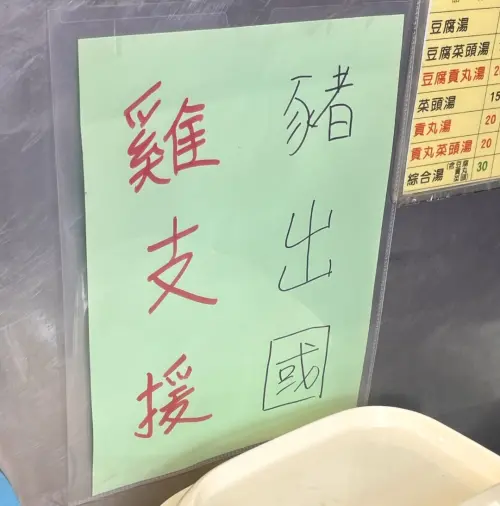 豬出國
雞支援
豆腐湯
豆腐菜頭湯
豆腐貢丸湯
菜頭湯 15
貢丸湯 20
貢丸菜頭湯 20
綜合湯 30